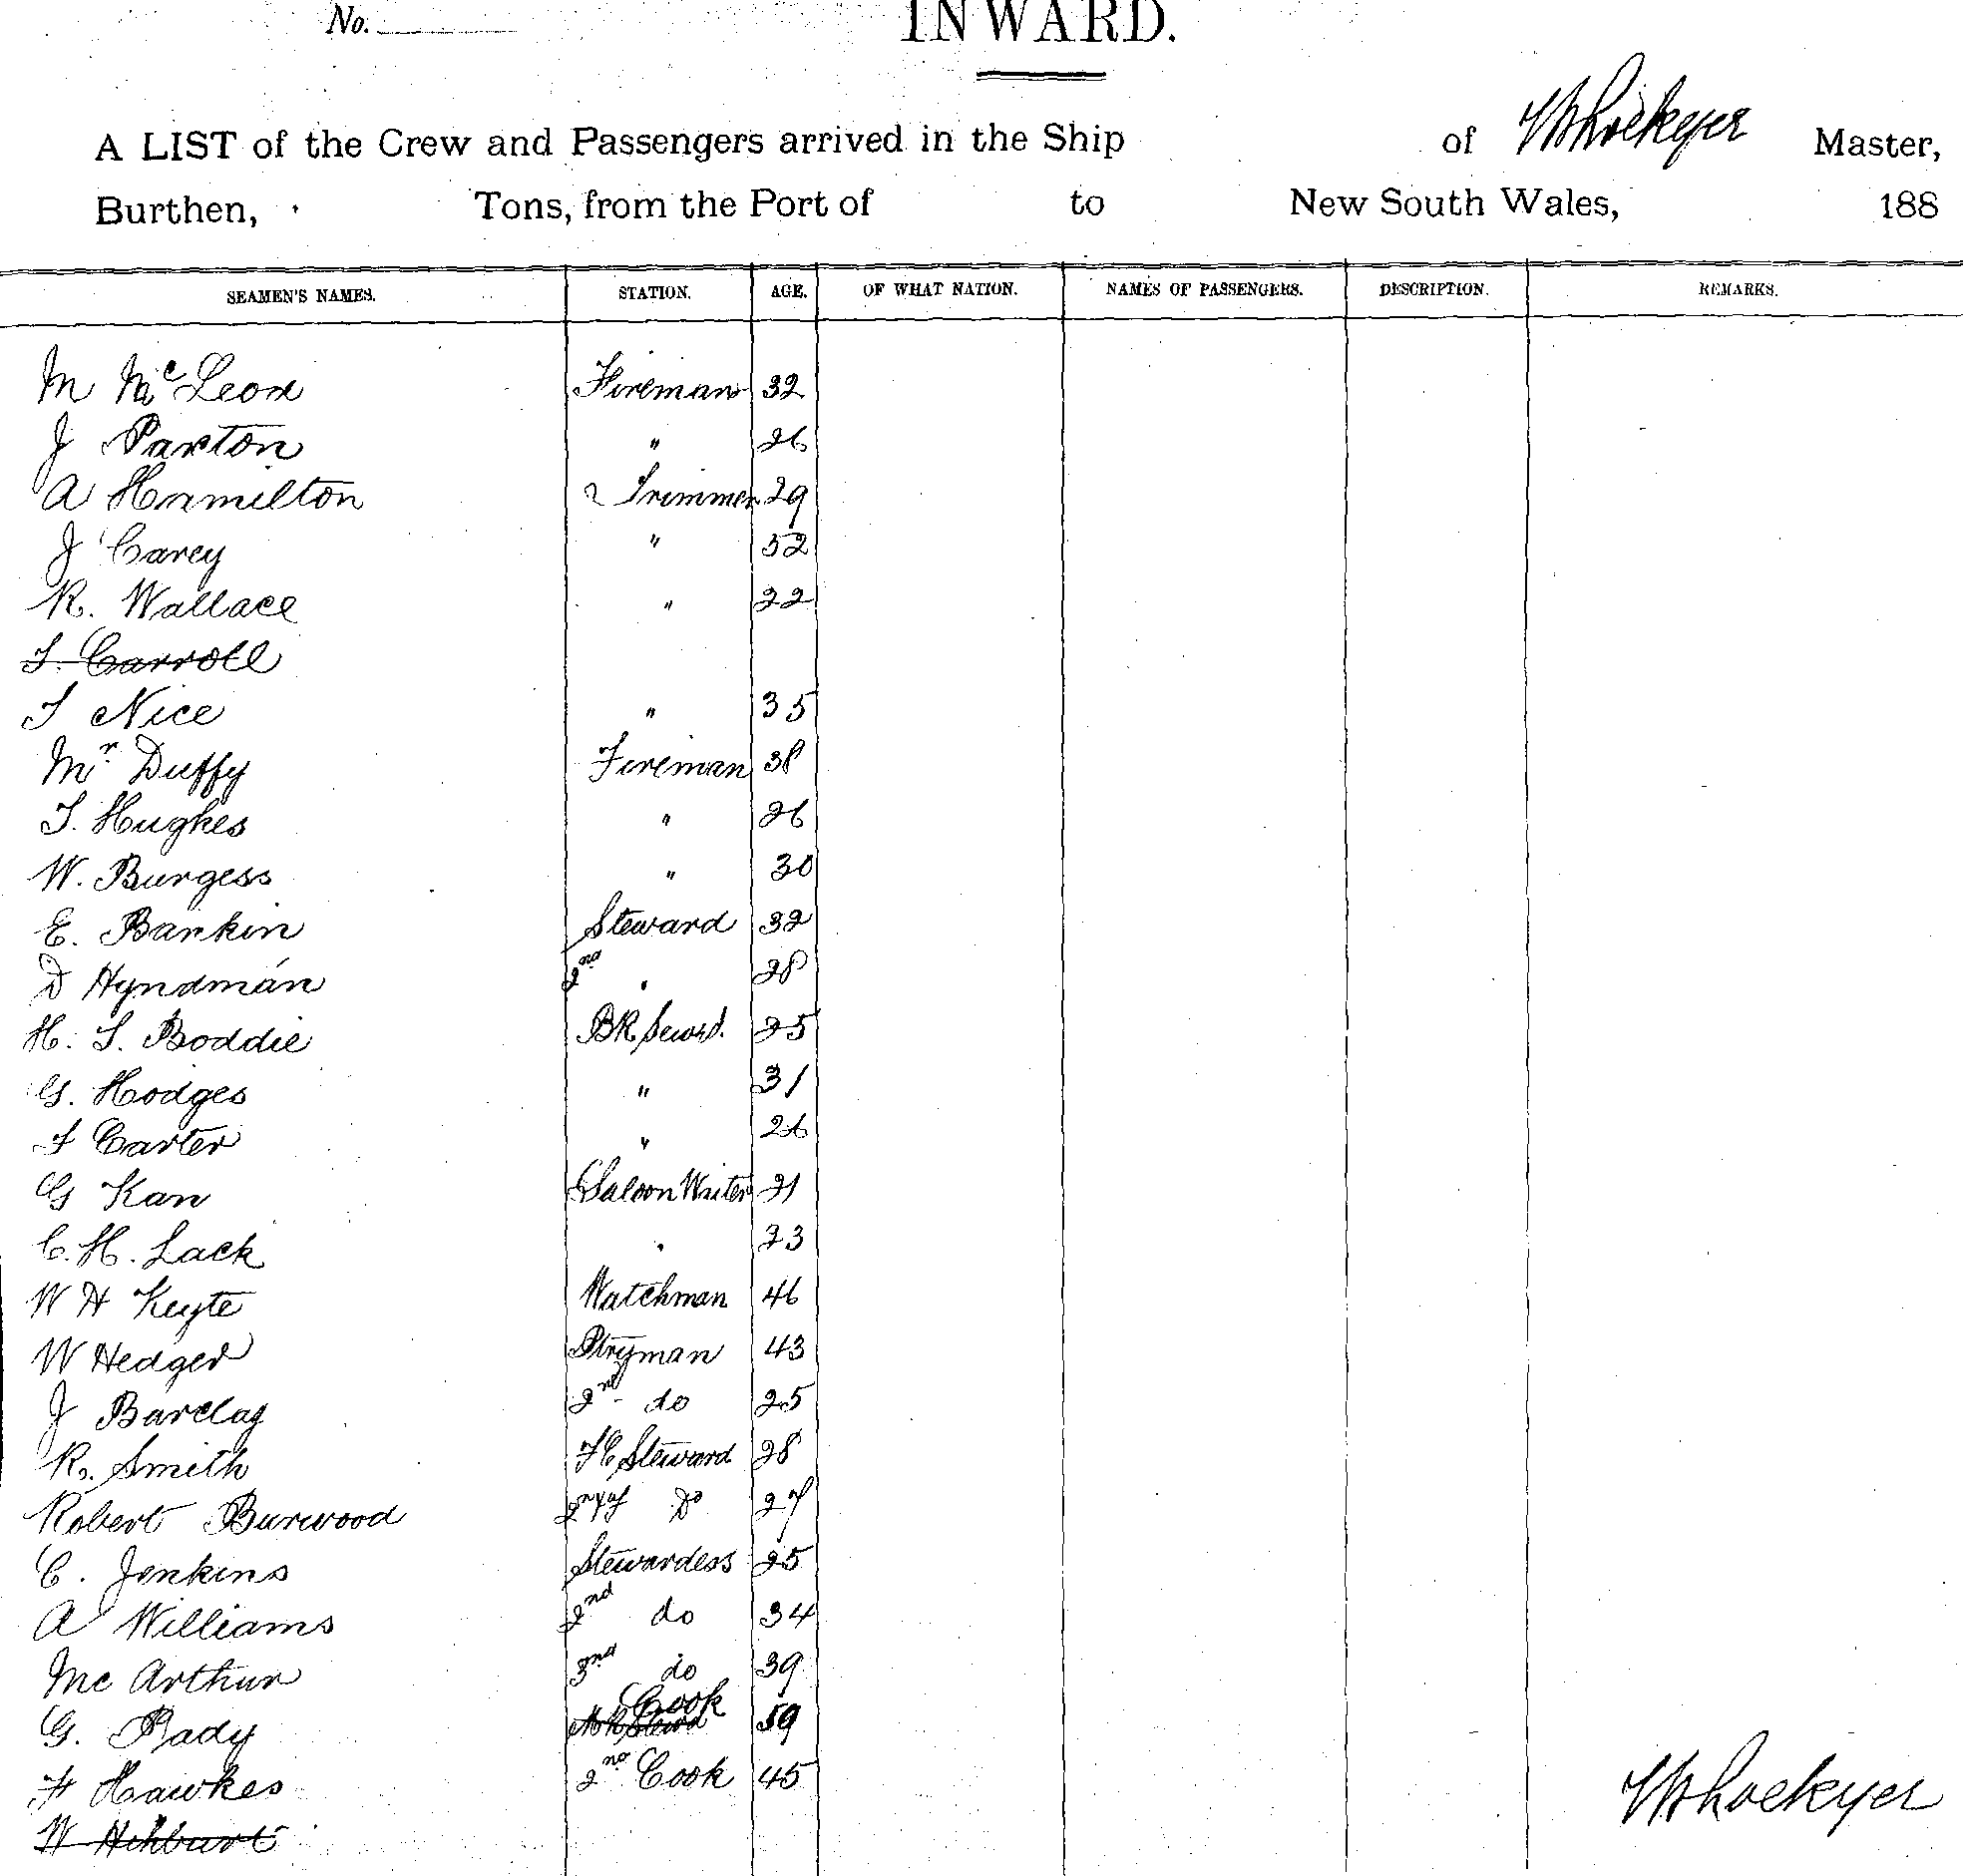 No.
INWARD.
A LIST of the Crew and Passengers arrived in the Ship of Master,
Burthen, Tons, from the Port of to New South Wales, 188
SEAMEN'S NAMES. STATION. AGE. OF WHAT NATION. NAMES OF PASSENGERS. DESCRIPTION. REMARKS.
M McLeod Fireman 32
J Paxton " 26
A Hamilton 2 Trimmer 29
J Carey " 52
R. Wallace " 22
T. Carroll
T Nice " 35
Mr. Duffy Fireman 38
T. Hughes " 26
W. Burgess " 30
E. Barkin Steward 32
D Hyndman 2nd " 28
H. S. Boddie BR Stewd. 25
G. Hodges " 31
F Carter " 26
G Kan Saloon Waiter 21
C. H. Lack " 23
W H Keyte Watchman 46
W Hedger Ptryman 43
J Barclay 2nd do 25
R. Smith FC Steward 28
Robert Burwood Do 27
C. Jenkins Stewardess 25
A Williams 2nd do 34
Mc Arthur 3rd do 39
G. Pady Cook 59
F Hawkes 2nd Cook 45
W